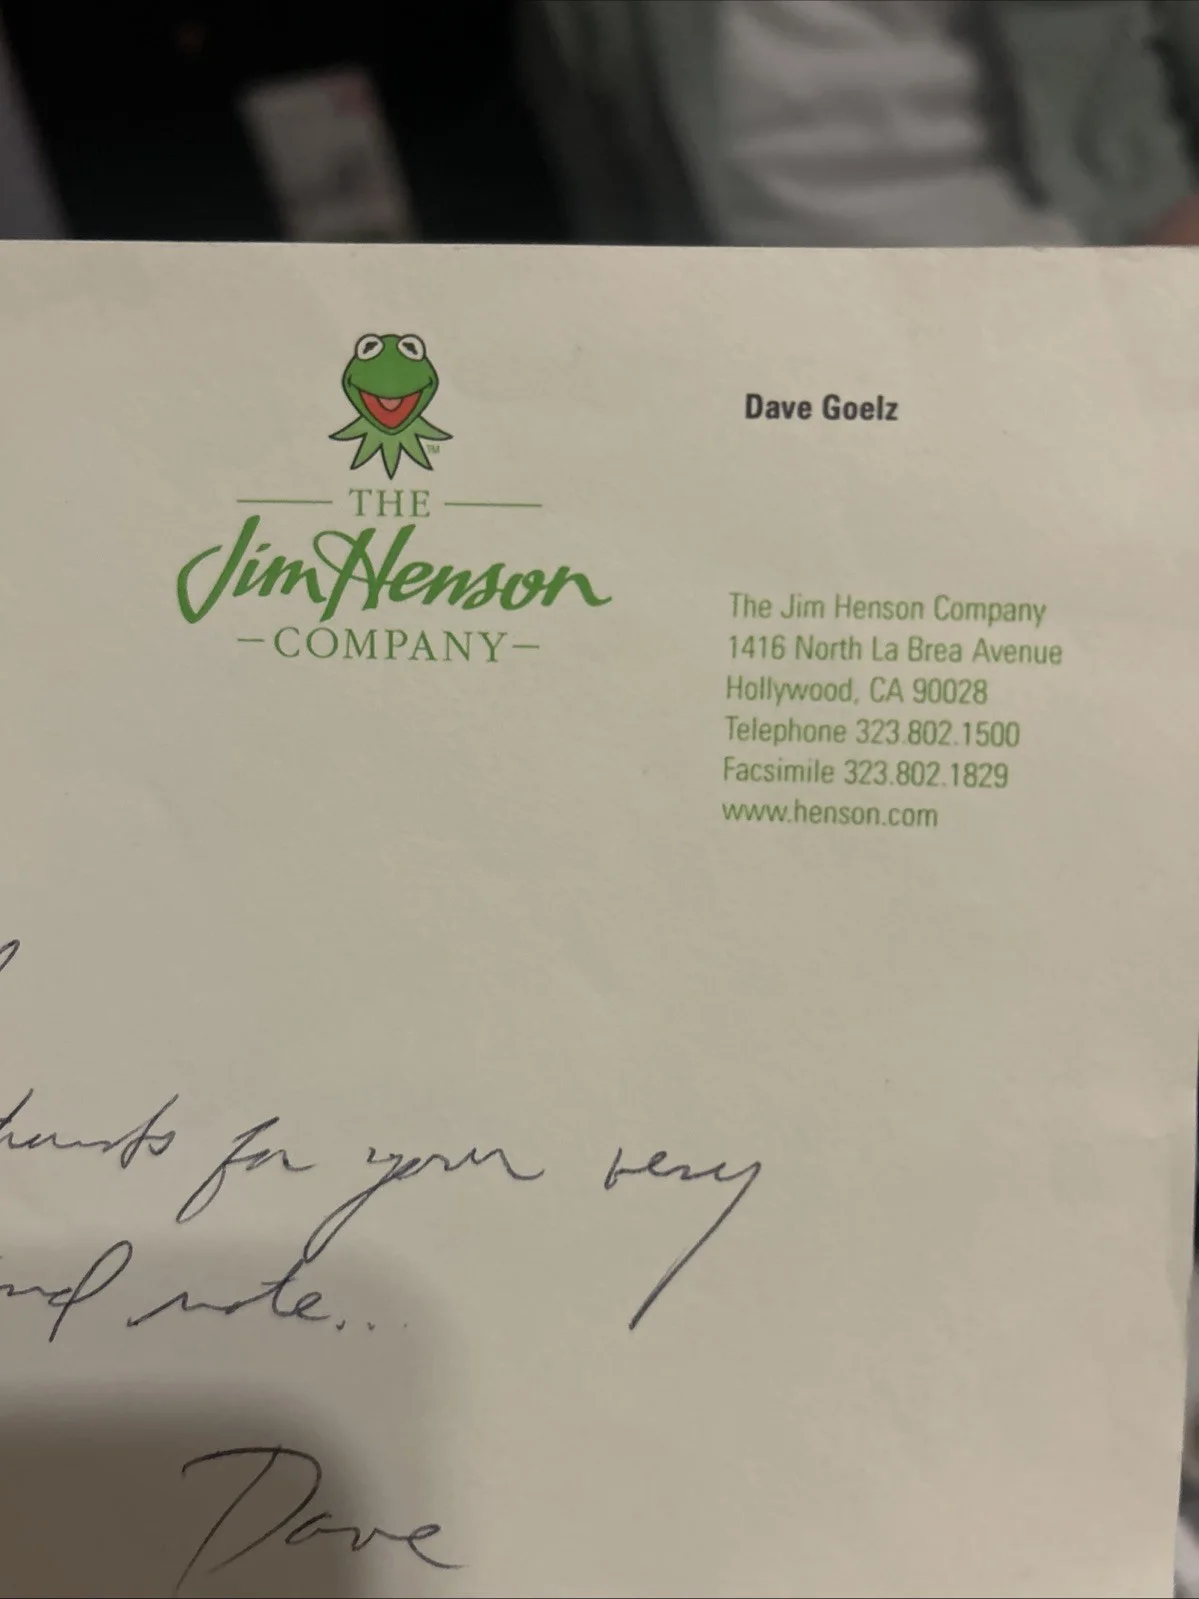 Dave Goelz
THE
Jim Henson
COMPANY
TM
The Jim Henson Company
1416 North La Brea Avenue
Hollywood, CA 90028
Telephone 323.802.1500
Facsimile 323.802.1829
www.henson.com
thanks for your very
note...
Dave